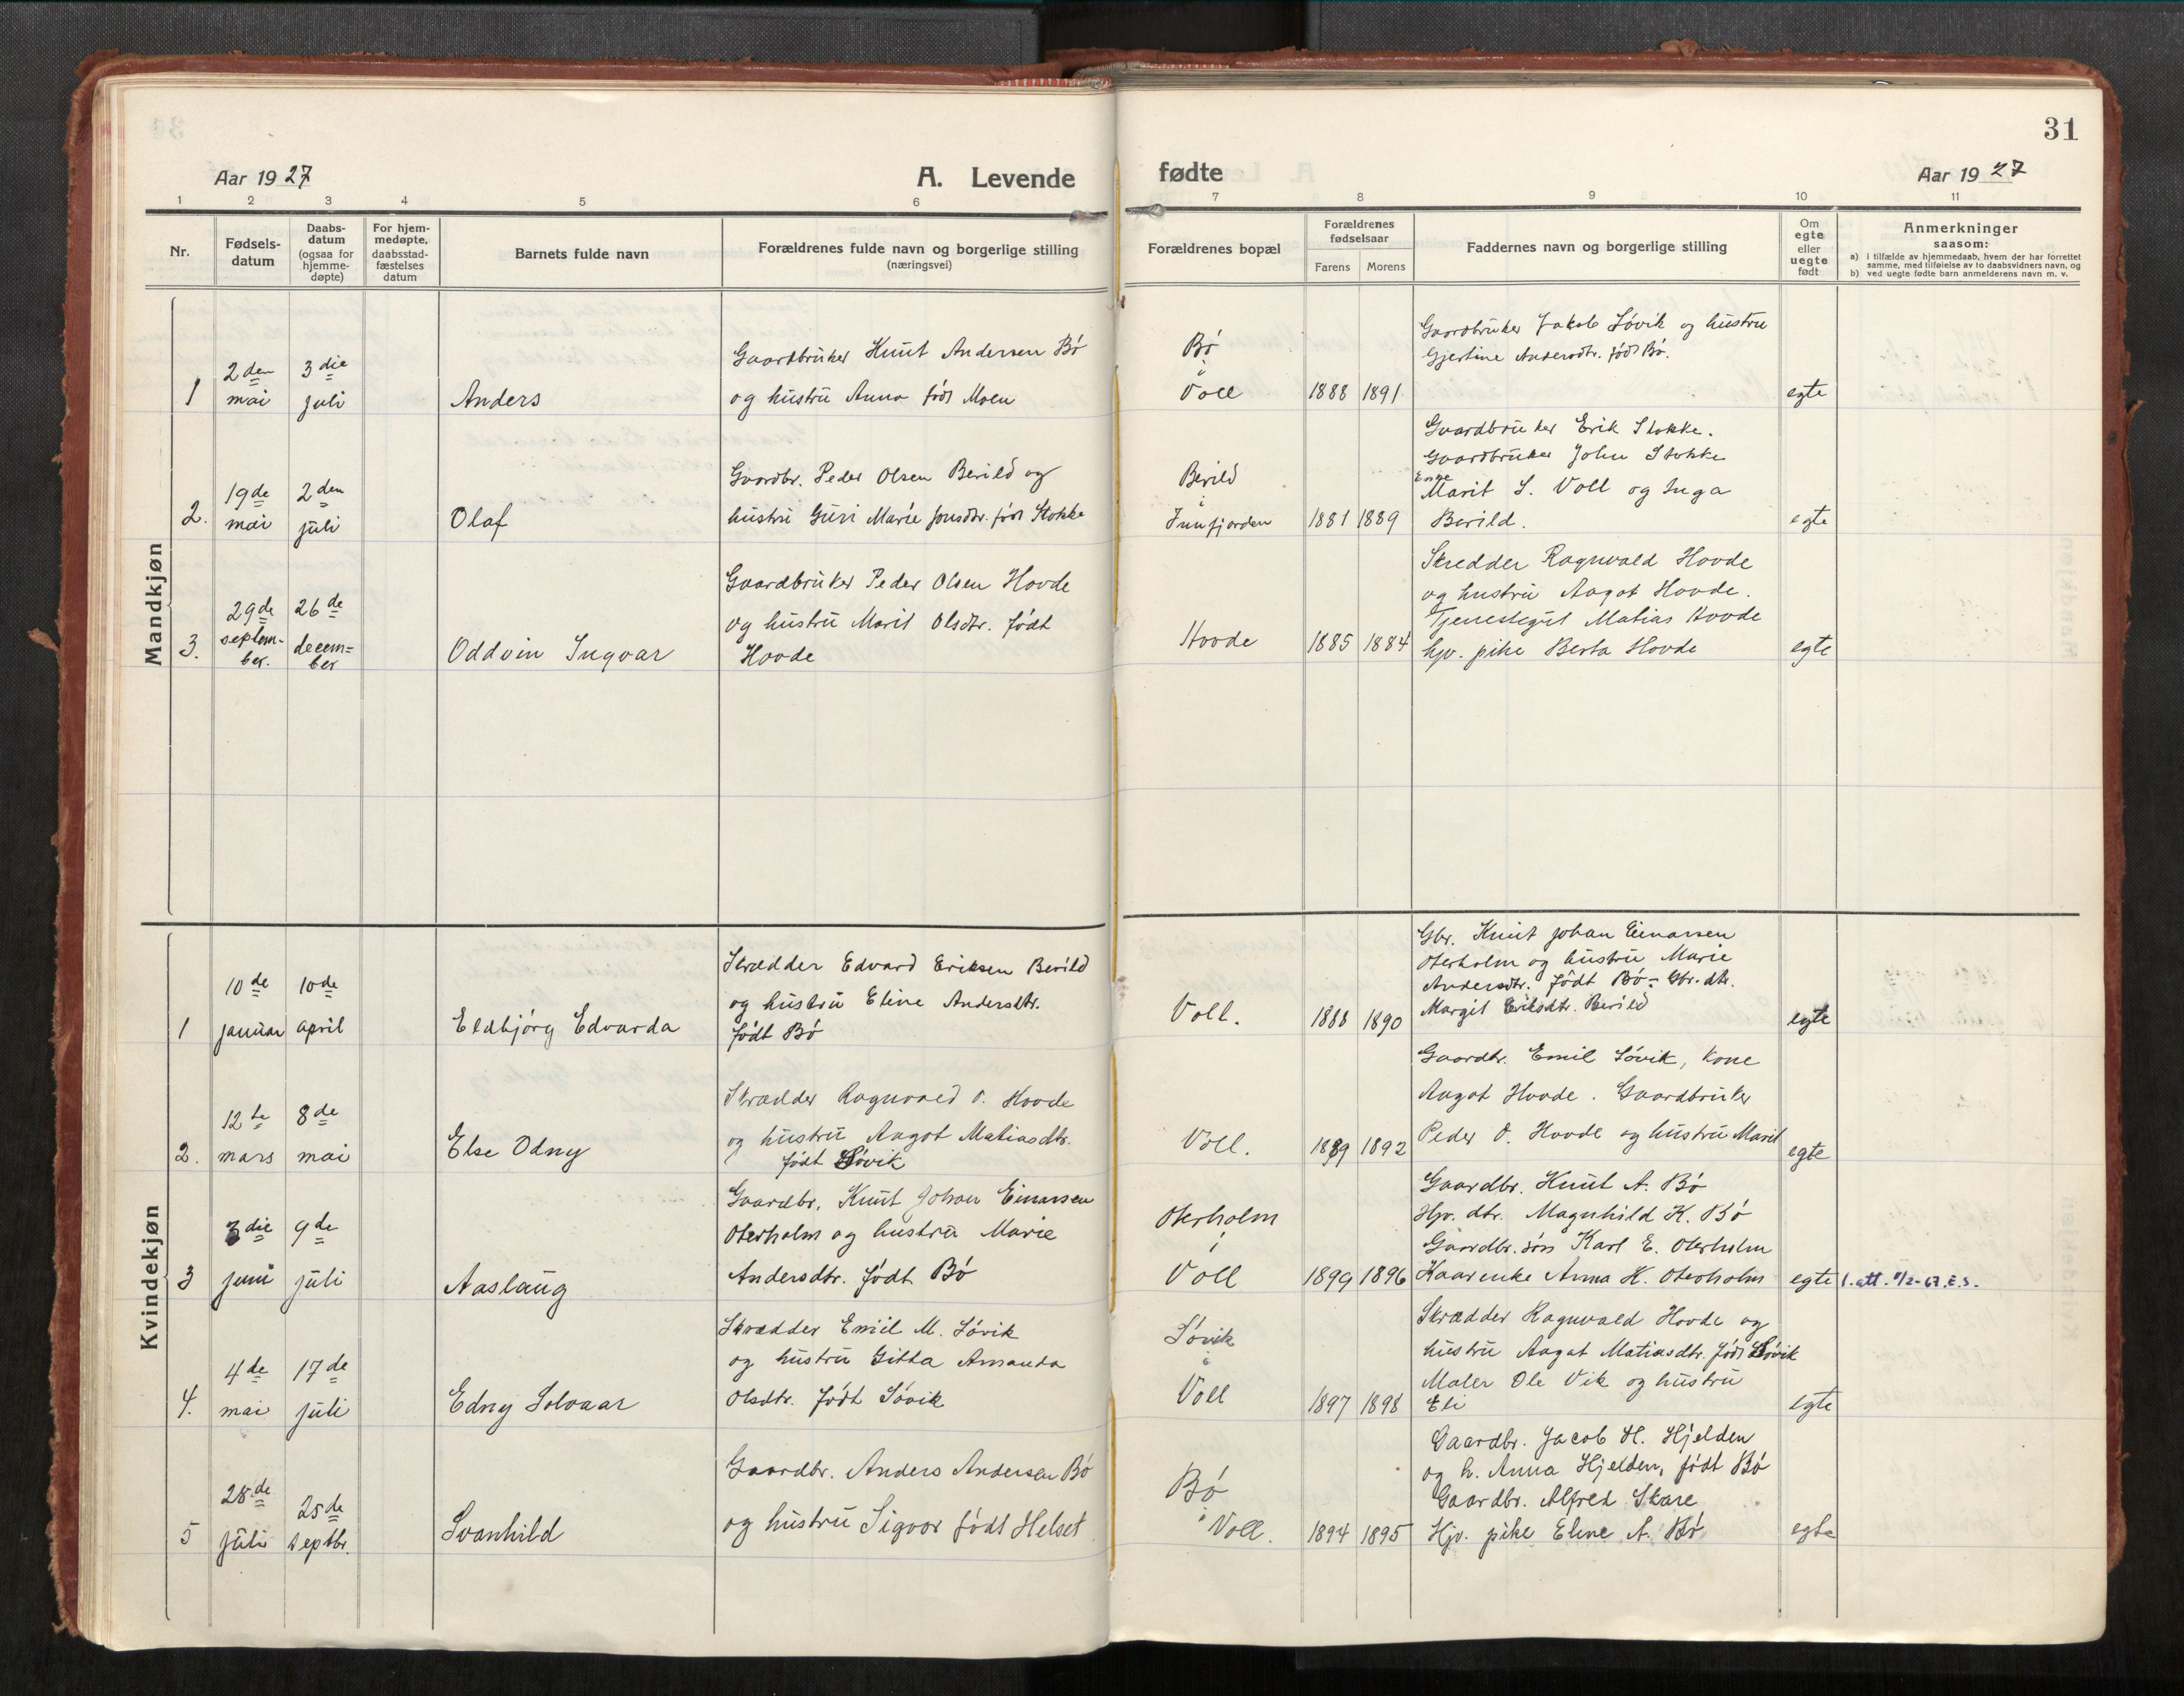 31
Aar 1927
A. Levende fødte
Aar 1927
1 2 3 4 5 6 7 8 9 10 11
Nr.
Fødsels-
datum
Daabs-
datum
(ogsaa for
hjemme-
døpte)
For hjem-
medøpte,
daabsstad-
fæstelses
datum
Barnets fulde navn
Forældrenes fulde navn og borgerlige stilling
(næringsvei)
Forældrenes bopæl
Forældrenes
fødselsaar
Farens Morens
Faddernes navn og borgerlige stilling
Om
egte
eller
uegte
født
Anmerkninger
saasom:
a) i tilfælde av hjemmedaab, hvem der har forrettet
samme, med tilføielse av to daabsvidners navn, og
b) ved uegte fødte barn anmelderens navn m. v.
Mandkjøn
1
2den
mai
3die
juli
Anders
Gaardbruker Knut Andersen Bö
og hustru Anna født Moen
Bö
i
Voll
1888 1891
Gaardbruker Jakob Sövik og hustru
Gjertine Andersdtr. født Bö.
egte
2.
19de
mai
2den
juli
Olaf
Gaardbr. Peder Olsen Berild og
hustru Guri Marie Jonsdtr. född Stokke
Berild
i
Innfjorden
1881 1889
Gaardbruker Erik Stokke.
Gaardbruker John Stokke
Enke
Marit S. Voll og Inga
Berild.
egte
3.
29de
septem-
ber.
26de
decem=
ber
Oddvin Ingvar
Gaardbruker Peder Olsen Hovde
og hustru Marit Olsdtr. født
Hovde
Hovde
1885 1884
Skredder Ragnvald Hovde
og hustru Aagot Hovde.
Tjenestegut Matias Hovde
hjv. pike Berta Hovde
egte
Kvindekjøn
1
10de
januar
10de
april
Eldbjörg Edvarda
Skrædder Edvard Eriksen Berild
og hustru Eline Andersdtr.
født Bö
Voll.
1888 1890
Gbr. Knut Johan Einarsen
Oterholm og hustru Marie
Andersdtr. født Bö - Gbr. dtr.
Margit Eriksdtr. Berild
egte
2.
12te
mars
8de
mai
Else Odny
Skrædder Ragnvald O. Hovde
og hustru Aagot Matiasdtr.
født Sövik
Voll.
1889 1892
Gaardbr. Emil Sövik, Kone
Aagot Hovde. Gaardbruker
Peder O. Hovde og hustru Marit
egte
3
3die
juni
9de
juli
Aaslaug
Gaardbr. Knut Johan Einarsen
Oterholm og hustru Marie
Andersdtr. født Bö
Oterholm
i
Voll
1899 1896
Gaardbr. Knut A. Bö
Hjv. dtr. Magnhild K. Bö
Gaardbr. sön Karl E. Oterholm
Kaarenke Anna H. Oterholm
egte
1. att. 9/2-67. E.S.
4.
4de
mai
17de
juli
Edny Solvaar
Skrædder Emil M. Sövik
og hustru Gitta Amanda
Olsdtr. født Sövik
Sövik
i
Voll
1897 1898
Skrædder Ragnvald Hovde og
hustru Aagot Matiasdtr. født Sövik
Maler Ole Vik og hustru
Eli
egte
5
28de
juli
25de
septbr.
Svanhild
Gaardbr. Anders Andersen Bö
og hustru Sigvor født Helset
Bö
i Voll.
1894 1895
Gaardbr. Jacob H. Hjelden
og h. Anna Hjelden, født Bö
Gaardbr. Alfred Skare
Hjv. pike Eline A. Bö
egte